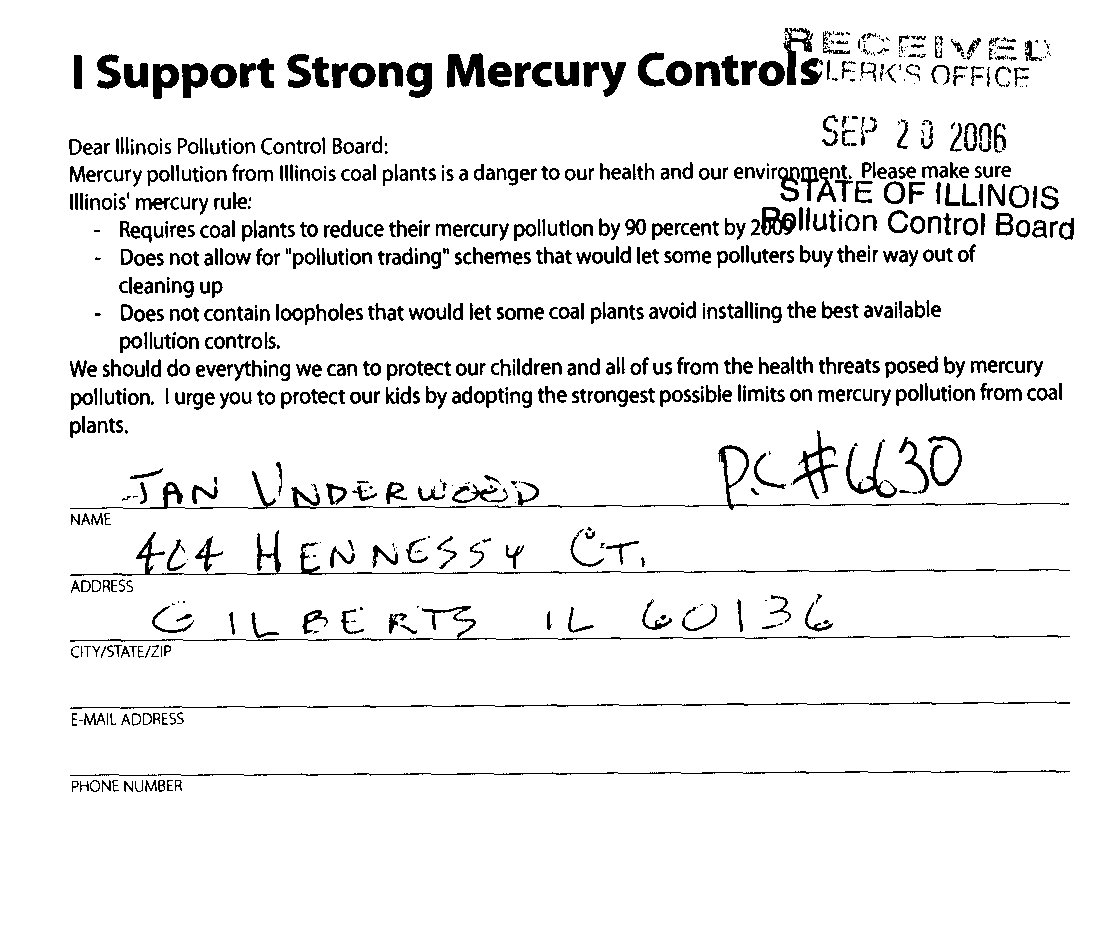 I Support Strong Mercury Controls
RECEIVED
CLERK'S OFFICE
SEP 20 2006
STATE OF ILLINOIS
Pollution Control Board
Dear Illinois Pollution Control Board:
Mercury pollution from Illinois coal plants is a danger to our health and our environment. Please make sure
Illinois' mercury rule:
- Requires coal plants to reduce their mercury pollution by 90 percent by 2009
- Does not allow for "pollution trading" schemes that would let some polluters buy their way out of
cleaning up
- Does not contain loopholes that would let some coal plants avoid installing the best available
pollution controls.
We should do everything we can to protect our children and all of us from the health threats posed by mercury
pollution. I urge you to protect our kids by adopting the strongest possible limits on mercury pollution from coal
plants.
JAN UNDERWOOD P.C #6630
NAME
HENNESSY CT.
ADDRESS
GILBERTS IL 60136
CITY/STATE/ZIP
E-MAIL ADDRESS
PHONE NUMBER